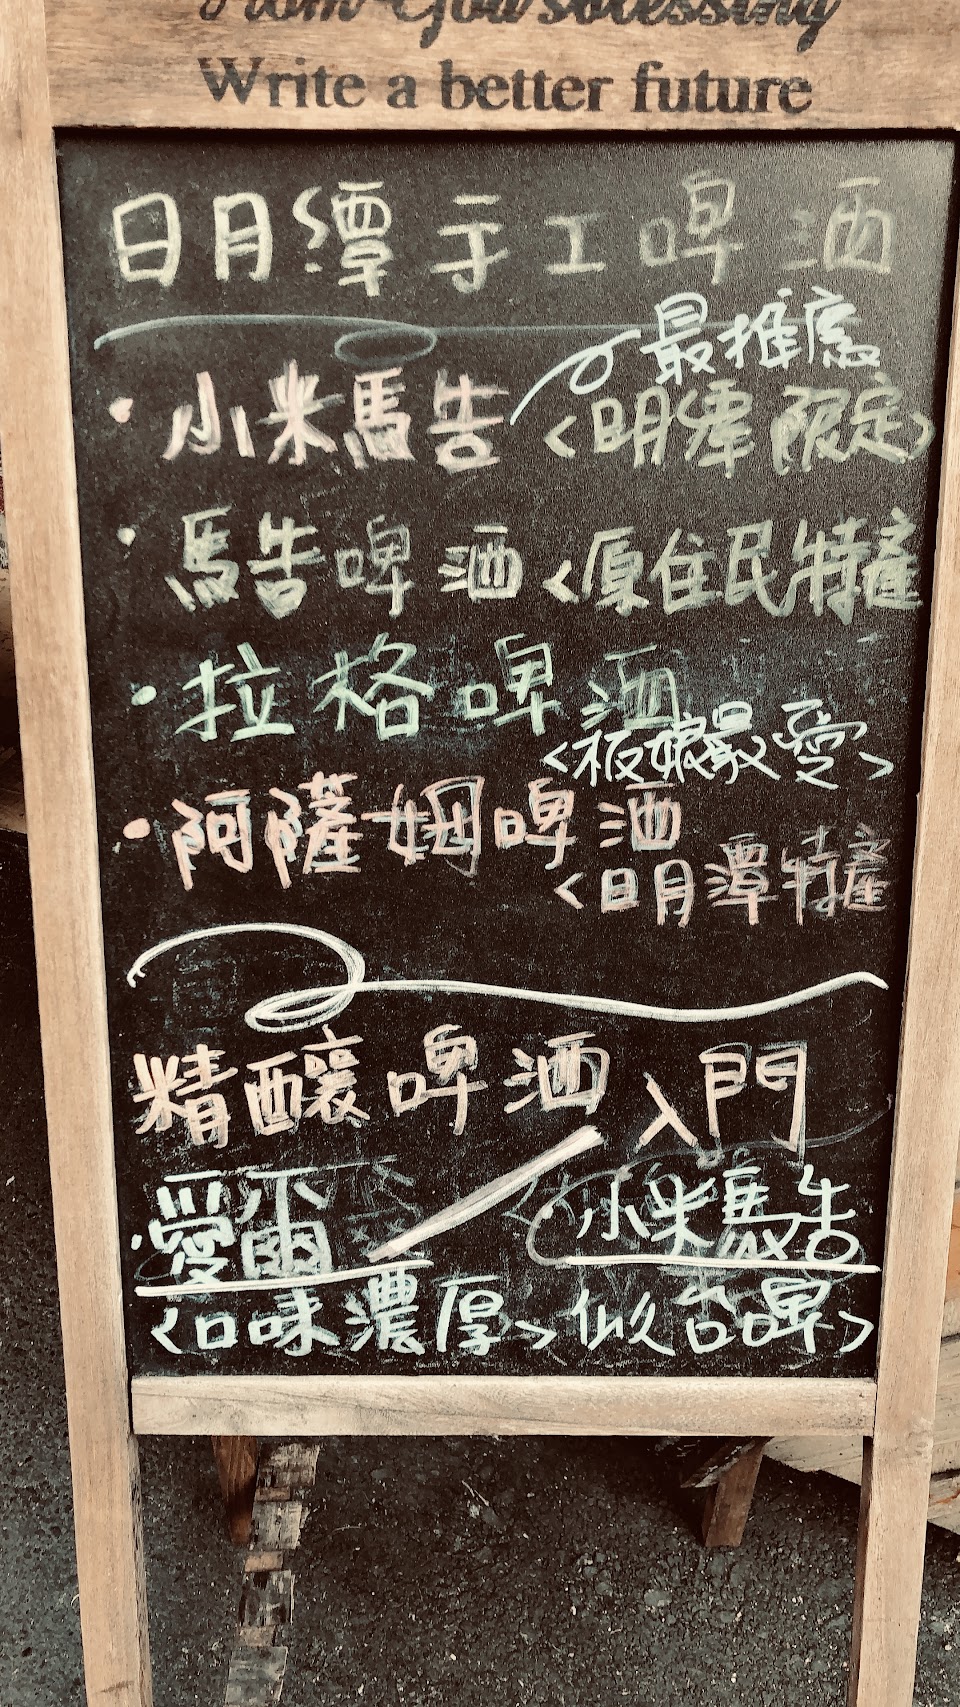 From God's blessing
Write a better future
日月潭手工啤酒
最推薦
·小米馬告
<明潭限定>
·馬告啤酒<原住民特產
·拉格啤酒
<板娘最愛>
·阿薩姆啤酒
<日月潭特產
精釀啤酒入門
·愛爾 / 小米馬告
<口味濃厚> 似台啤>